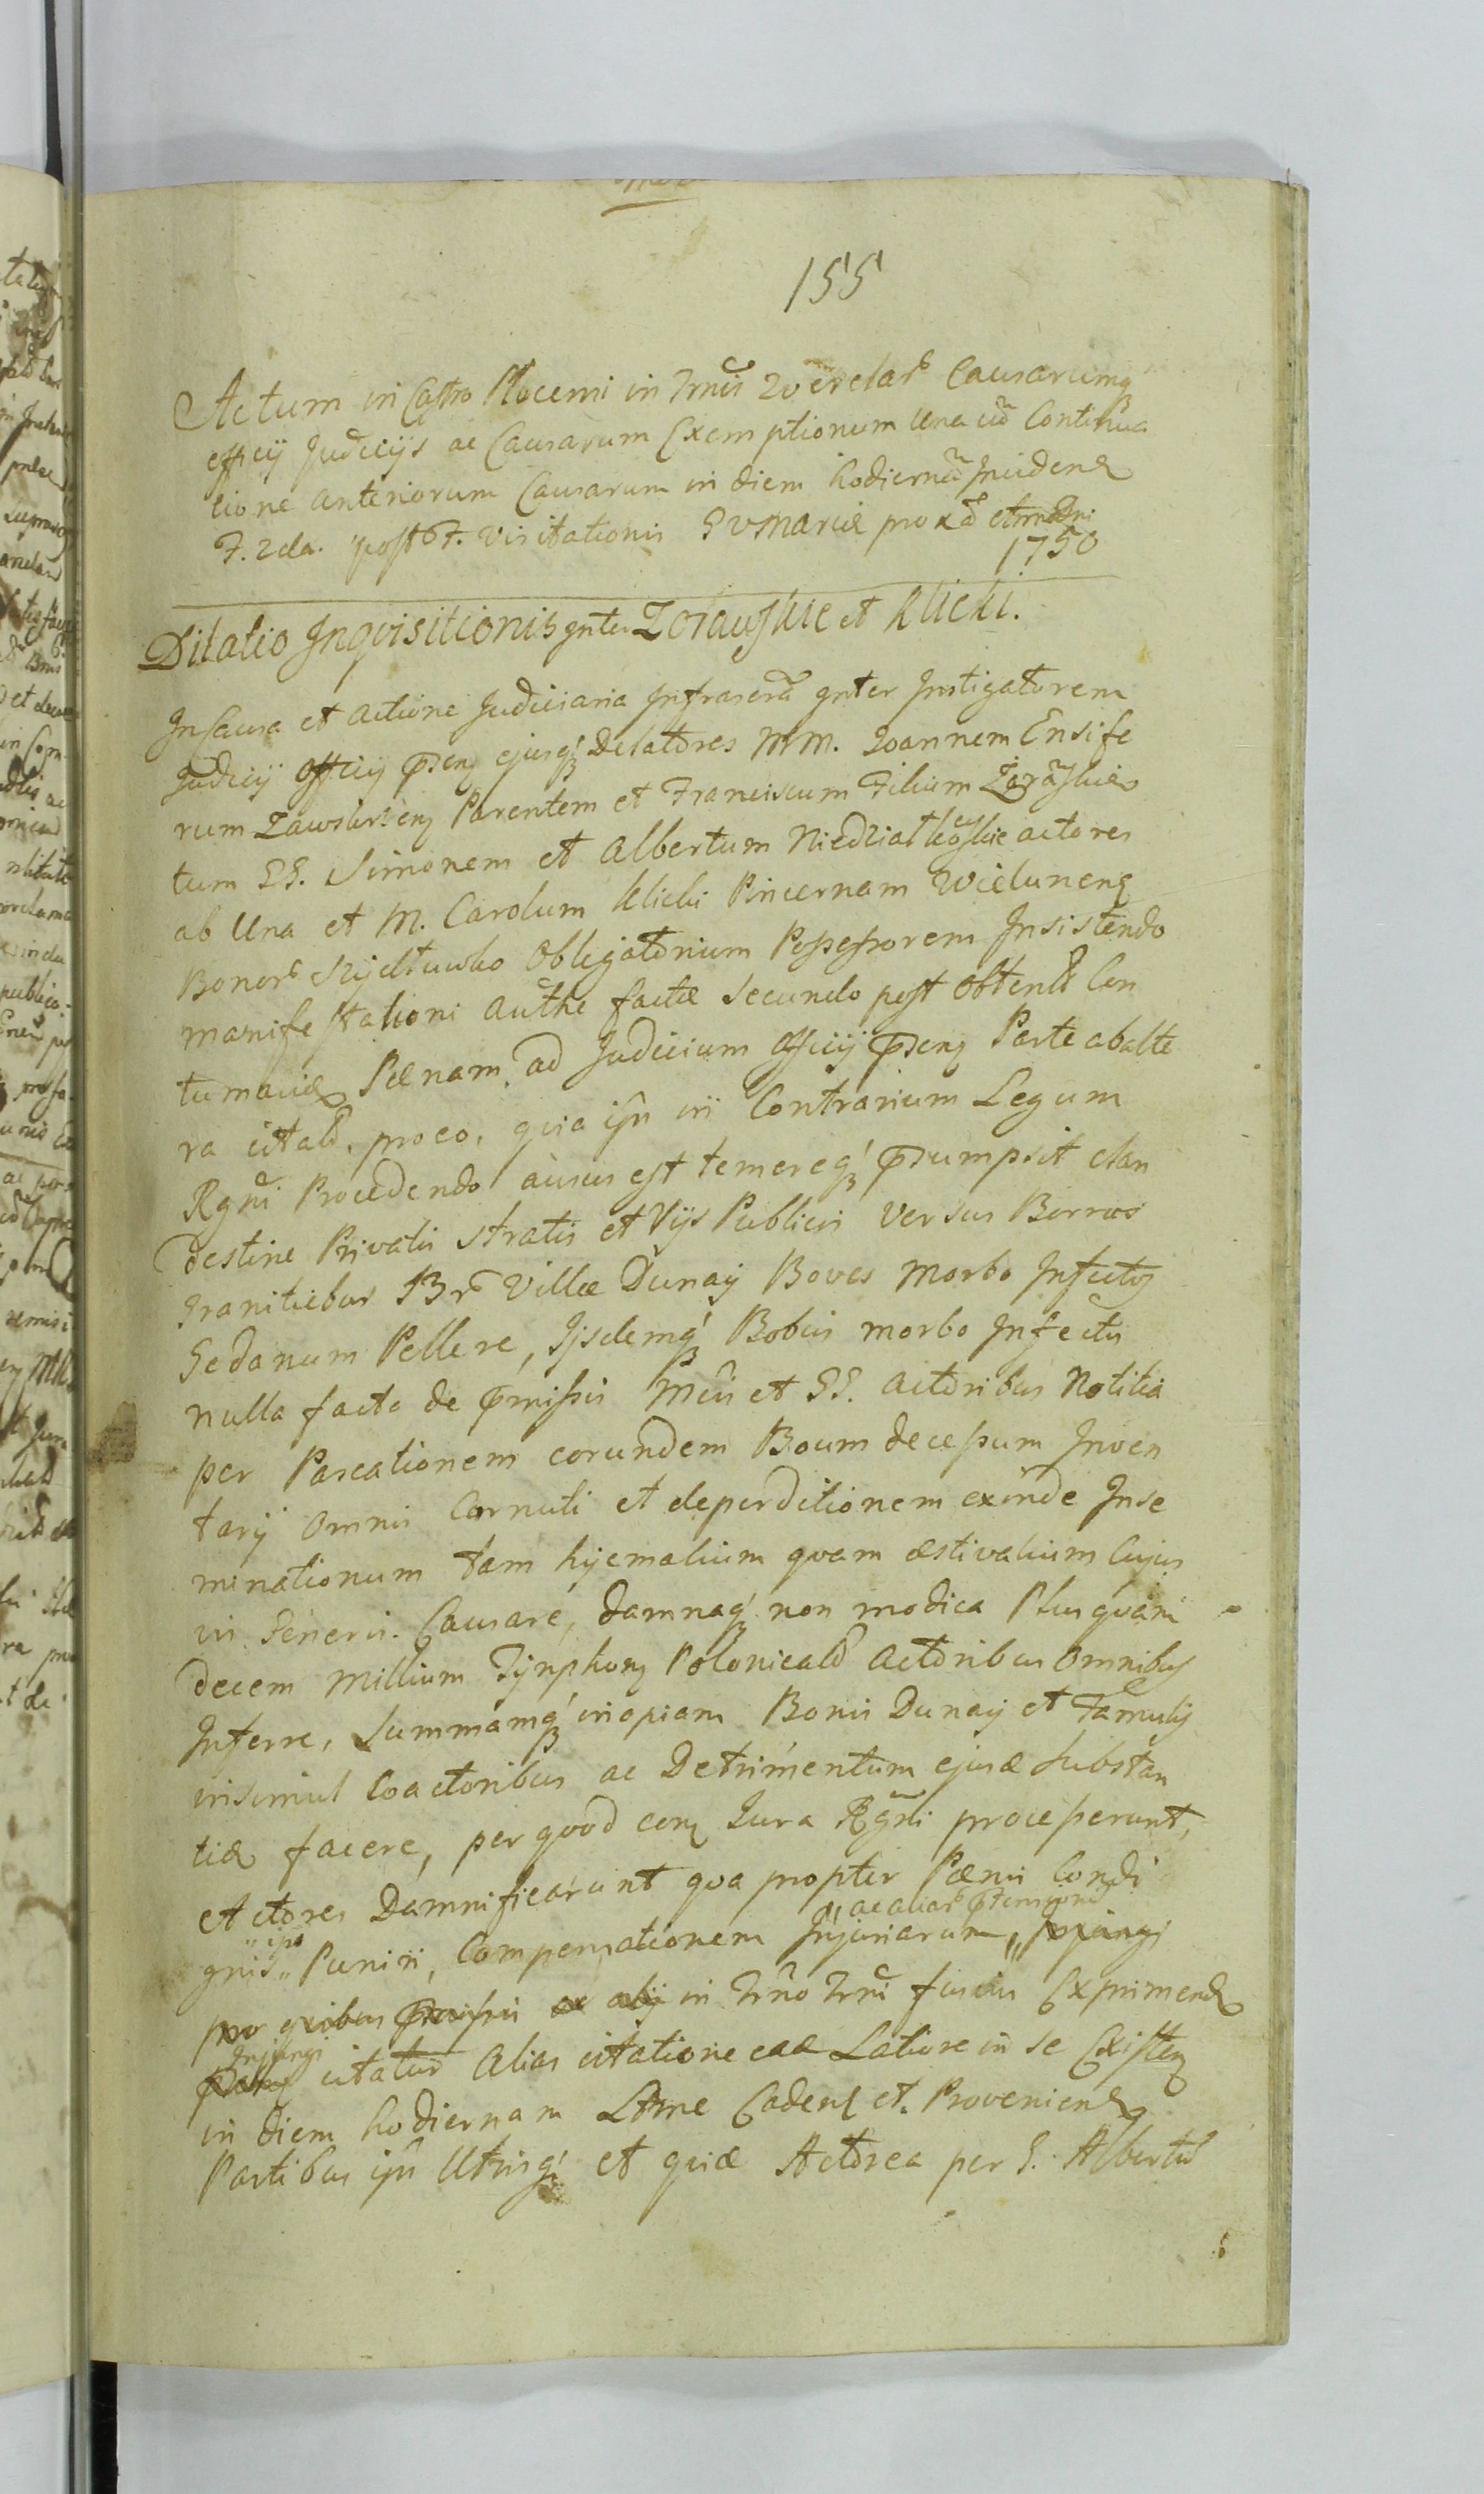 155
Actum in Castro Plocensi in Trnis Querelar Causarumq
officij Judicijs ac Causarum Exemptionum Una cu Continua
tione anteriorum Causarum in diem hodierna Inciden
F. 2da. post F. Visitationis Mariæ prox
1750
Dilatio Inqvisitionis Inter Zorawskie et Klicki.
In Causa et actione Judiciaria Infrascra Inter Instigatorem
Judicij Officij Psen ejusq Delatores MM. Joannem Ensife
rum Zawskrzen Parentem et Franciscum Filium
tum GG. Simonem et Albertum Niedzialkowskie actores
ab Una et M. Carolum Klicki Pincernam Wielunen
Bonor Obligatorium Possessorem Insistendo
manifestationi authe factæ Secundo post obtent Con
tumaciæ Pænam ad Judicium Officij Psen Parte ab alte
ra citat. proeo, qvia ipse in Contrarium Legum
Rgni Procedendo ausus est temereq Psumpsit clan
destine Privatis stratis et Vijs Publicis versus Borros
Granitiebus Br Villæ Dunay Boves Morbo Infectos
Gedanum Pellere, Ijsdemq Bobus morbo Infectis
nulla facta de Pmissis Mcis et GG. actoribus Notitia
per Pascationem eorundem Boum decessum Inven
tarij Omnis Cornuti et deperditionem exinde Inse
minationum tam hyemalium qvam æstivalium Cujus
vis Generis Causare, damnaq non modica Plusqvam
decem Millium Tynphon Polonical actoribus omnibus
Inferre, Summamq inopiam Bonis Dunay et Famulis
insimul Coactoribus ac Detrimentum ejusd Substan
tiæ facere, per qvod con Jura Rgni processerunt,
et Actores Damnificarunt qva propter Pænis Condi
gnis ,,ips,, Puniri, Compensationem Injuriarum ,, ac aliar Ptensionu
pro qvibus Pmissis in Trno Trni fusius Exprimend
Injungi citatur Alias citatione ead Latiore in se Existen
in diem hodiernam Ltme Caden et Provenien
Partibus ipsis Utrisq et qvid Actorea per G. Albertu